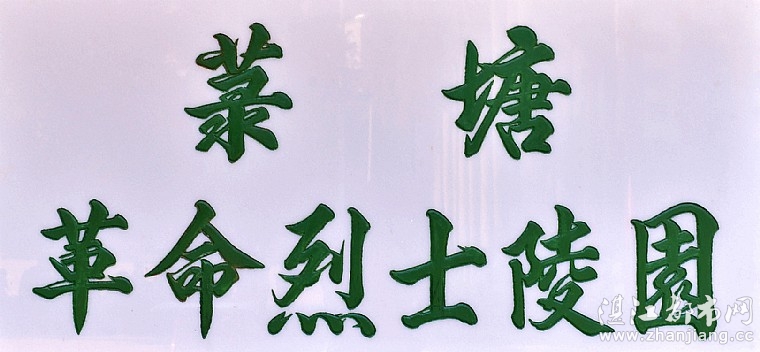 菉塘
革命烈士陵園
湛江都市网
www.zhanjiang.cc